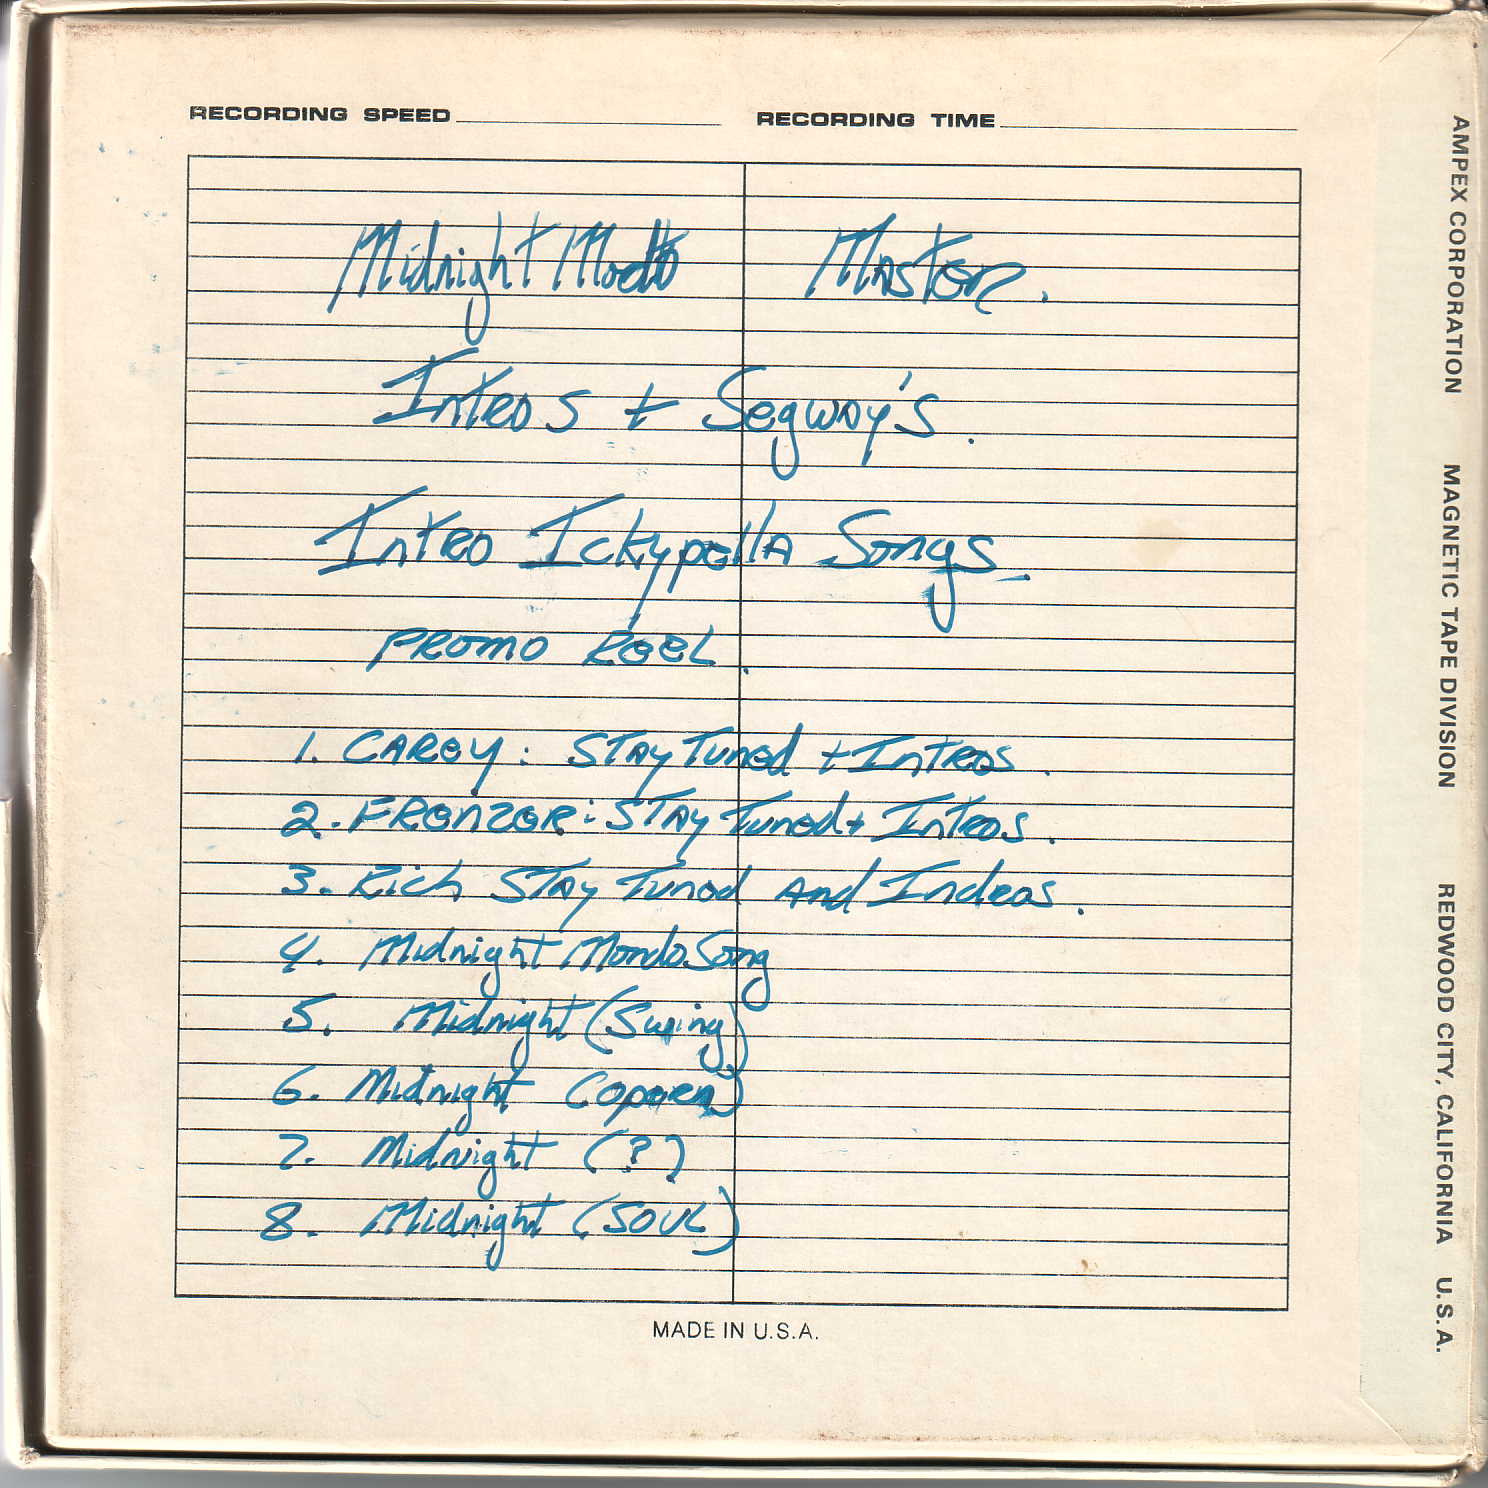 RECORDING SPEED RECORDING TIME
Midnight Master.
Intros + Segway's.
Intro Ickypella Songs.
PROMO REEL.
1. CAREY: STAY Tuned + Intros.
2. FRENZER: STAY Tuned + Intros.
3. Rich STAY Tuned And Intros.
4. Midnight Mondo Song
5. Midnight (Swing)
6. Midnight
7. Midnight (?)
8. Midnight (SOUL)
MADE IN U.S.A.
AMPEX CORPORATION MAGNETIC TAPE DIVISION REDWOOD CITY, CALIFORNIA U.S.A.